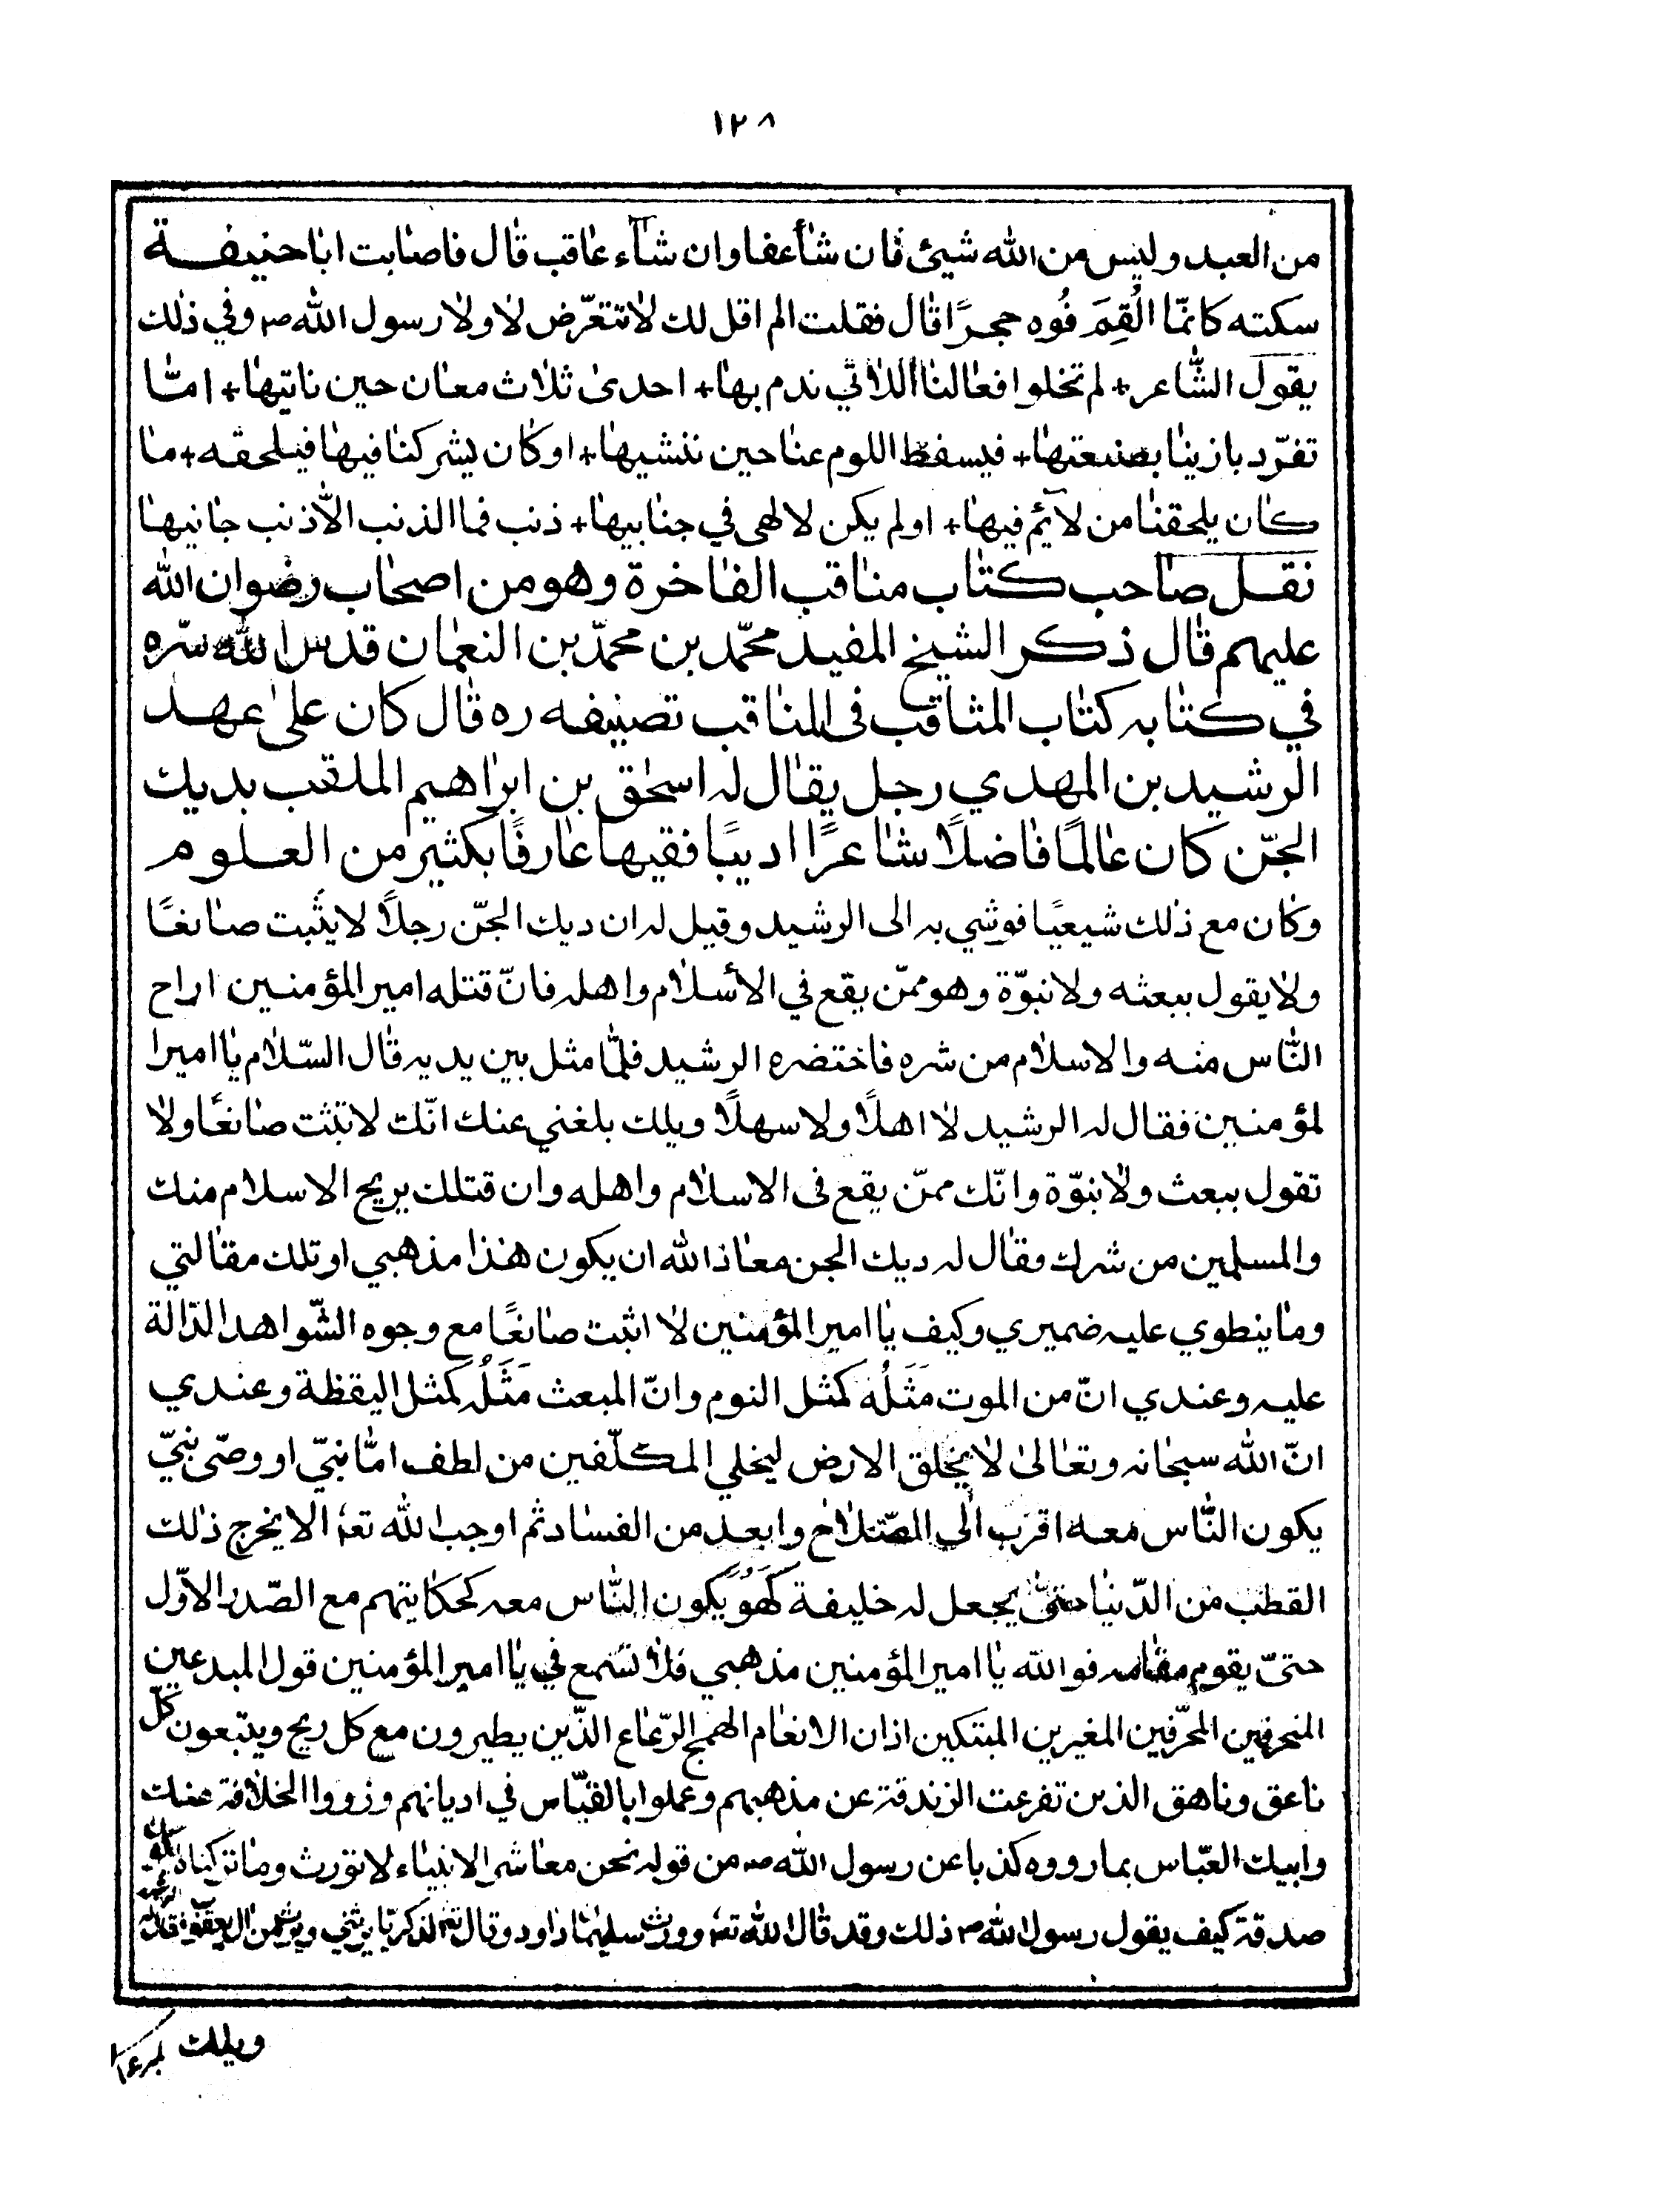 ١٢٨
من العبد وليس من الله شيئ فان شأعفا وان شآء عاقب قال فاصابت ابا حنيفة
سكته كانمّا اُلقِمَ فُوه حجرًا قال فقلت الم اقل لك لا تتعرّض لاولاد رسول الله ص وفي ذلك
يقول الشّاعر + لم تخلوا فعالنا اللاتي ندم بها + احدى ثلاث معان حين ناتيها + امّا
تفرّد بازينا بصنيعتها + فيسقط اللوم عنا حين ننشيها + او كان يشركنا فيها فيلحقه + ما
كان يلحقنا من لآئم فيها + او لم يكن لالهي في جنابيها + ذنب فما الذنب الاّ ذنب جانيها
نقل صاحب كتاب مناقب الفاخرة وهو من اصحاب رضوان الله
عليهم قال ذكر الشيخ المفيد محمّد بن محمّد بن النعمان قدس الله سرّه
في كتابه كتاب المثاقب فى المناقب تصنيفه ره قال كان على عهد
الرشيد بن المهدي رجل يقال له اسحٰق بن ابراهيم الملقب بديك
الجنّ كان عالمًا فاضلًا شاعرًا اديبًا فقيها عارفًا بكثير من العلوم
وكان مع ذلك شيعيًا فوشي به الى الرشيد وقيل له ان ديك الجنّ رجلًا لا يثبت صانعًا
ولا يقول ببعثه ولا نبوّة وهو ممّن يقع في الأسلام واهله فانّ قتله امير المؤمنين اراح
النّاس منه والاسلام من شره فاختضره الرشيد فلمّا مثل بين يديه قال السّلام يا اميرا
لمؤمنين فقال له الرشيد لا اهلًا ولا سهلًا ويلك بلغني عنك انّك لا تثبت صانعًا ولا
تقول ببعث ولا نبوّة وانّك ممّن يقع فى الاسلام واهله وان قتلك يريح الاسلام منك
والمسلمين من شرك وقال له ديك الجن معاذ الله ان يكون هذا مذهبي او تلك مقالتي
وما ينطوي عليه ضميري وكيف يا امير المؤمنين لا اثبت صانعًا مع وجوه الشّواهد الدّالة
عليه وعندي انّ من الموت مَثَلُه كمثل النوم وانّ المبعث مَثَلُه كمثل اليقظة وعندي
انّ الله سبحانه وتعالى لا يخلق الارض ليخلي المكلّفين من لطف امّا نبيّ او وصّى نبيّ
يكون النّاس معه اقرب الى الصّلاح وابعد من الفساد ثم اوجب الله تعہ الا يخرج ذلك
القطب من الدّنيا حتى يجعل له خليفة كَهُوَ يكون النّاس معه كحكايتهم مع الصّدر الاوّل
حتىّ يقوم مقامه فوالله يا امير المؤمنين مذهبي فلا تسمع في يا امير المؤمنين قول المبدعين
المنحرفين المحّرفين المغيرين المبتكين اذان الانعام الهمج الرّعاع الذّين يطيرون مع كل ريح ويتبعون كلّ
ناعق وناهق الذين تفرعت الزندقة عن مذهبهم وعملوا بالقيّاس في اديانهم وزووا الخلافة عنك
وابيك العبّاس بما رووه كذبا عن رسول الله ص من قوله نحن معاشر الانبياء لا نورث وما تركناه
صدقة كيف يقول رسول الله ص ذلك وقد قال الله تعہ وورث سليمان داود وقال تعہ لذكريّا يرثني ويرث من ال يعقوب
ويلك